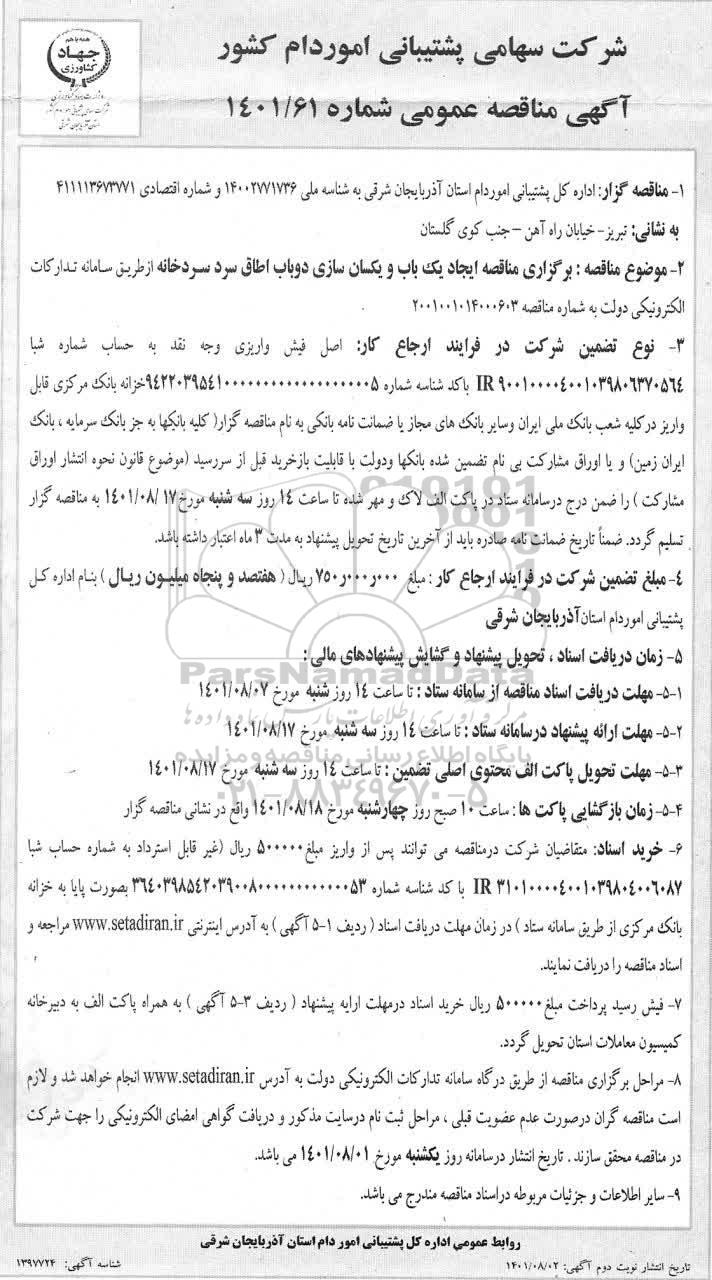 همه با هم
جهاد
کشاورزی
شرکت سهامی پشتیبانی اموردام کشور
آگهی مناقصه عمومی شماره ۱۴۰۱/۶۱
۱- مناقصه گزار: اداره کل پشتیبانی اموردام استان آذربایجان شرقی به شناسه ملی ۱۴۰۰۲۷۷۱۷۳۶ و شماره اقتصادی ۴۱۱۱۱۳۶۷۳۷۷۱
به نشانی: تبریز- خیابان راه آهن –جنب کوی گلستان
۲- موضوع مناقصه : برگزاری مناقصه ایجاد یک باب و یکسان سازی دوباب اطاق سرد سردخانه ازطریق سامانه تدارکات
الکترونیکی دولت به شماره مناقصه ۲۰۰۱۰۰۱۰۱۴۰۰۰۶۰۳
۳- نوع تضمین شرکت در فرایند ارجاع کار: اصل فیش واریزی وجه نقد به حساب شماره شبا
IR ۹۰۰۱۰۰۰۰۴۰۰۱۰۳۹۸۰۶۳۷۰۵۶۴ باکد شناسه شماره خزانه بانک مرکزی قابل
واریز درکلیه شعب بانک ملی ایران وسایر بانک های مجاز یا ضمانت نامه بانکی به نام مناقصه گزار( کلیه بانکها به جز بانک سرمایه ، بانک
ایران زمین) و یا اوراق مشارکت بی نام تضمین شده بانکها ودولت با قابلیت بازخرید قبل از سررسید (موضوع قانون نحوه انتشار اوراق
مشارکت ) را ضمن درج درسامانه ستاد در پاکت الف لاک و مهر شده تا ساعت ۱۴ روز سه شنبه مورخ ۱۴۰۱/۰۸/۱۷ به مناقصه گزار
تسلیم گردد. ضمناً تاریخ ضمانت نامه صادره باید از آخرین تاریخ تحویل پیشنهاد به مدت ۳ ماه اعتبار داشته باشد.
۴- مبلغ تضمین شرکت در فرایند ارجاع کار : مبلغ ۷۵۰ر۰۰۰ر۰۰۰ ریال ( هفتصد و پنجاه میلیون ریال ) بنام اداره کل
پشتیبانی اموردام استان آذربایجان شرقی
۵- زمان دریافت اسناد ، تحویل پیشنهاد و گشایش پیشنهادهای مالی :
۵-۱- مهلت دریافت اسناد مناقصه از سامانه ستاد : تا ساعت ۱۴ روز شنبه مورخ ۱۴۰۱/۰۸/۰۷
۵-۲- مهلت ارائه پیشنهاد درسامانه ستاد : تا ساعت ۱۴ روز سه شنبه مورخ ۱۴۰۱/۰۸/۱۷
۵-۳- مهلت تحویل پاکت الف محتوی اصلی تضمین : تا ساعت ۱۴ روز سه شنبه مورخ ۱۴۰۱/۰۸/۱۷
۵-۴- زمان بازگشایی پاکت ها : ساعت ۱۰ صبح روز چهارشنبه مورخ ۱۴۰۱/۰۸/۱۸ واقع در نشانی مناقصه گزار
۶- خرید اسناد: متقاضیان شرکت درمناقصه می توانند پس از واریز مبلغ ۵۰۰۰۰۰ ریال (غیر قابل استرداد به شماره حساب شبا
IR ۳۱۰۱۰۰۰۰۴۰۰۱۰۳۹۸۰۴۰۰۶۰۸۷ با کد شناسه شماره بصورت پایا به خزانه
بانک مرکزی از طریق سامانه ستاد ) در زمان مهلت دریافت اسناد ( ردیف ۱-۵ آگهی ) به آدرس اینترنتی www.setadiran.ir مراجعه و
اسناد مناقصه را دریافت نمایند.
۷- فیش رسید پرداخت مبلغ ۵۰۰۰۰۰ ریال خرید اسناد درمهلت ارایه پیشنهاد ( ردیف ۳-۵ آگهی ) به همراه پاکت الف به دبیرخانه
کمیسیون معاملات استان تحویل گردد.
۸- مراحل برگزاری مناقصه از طریق درگاه سامانه تدارکات الکترونیکی دولت به آدرس www.setadiran.ir انجام خواهد شد و لازم
است مناقصه گران درصورت عدم عضویت قبلی ، مراحل ثبت نام درسایت مذکور و دریافت گواهی امضای الکترونیکی را جهت شرکت
در مناقصه محقق سازند . تاریخ انتشار درسامانه روز یکشنبه مورخ ۱۴۰۱/۰۸/۰۱ می باشد.
۹- سایر اطلاعات و جزئیات مربوطه دراسناد مناقصه مندرج می باشد.
روابط عمومی اداره کل پشتیبانی امور دام استان آذربایجان شرقی
تاریخ انتشار نوبت دوم آگهی: ۱۴۰۱/۰۸/۰۲
شناسه آگهی: ۱۳۹۷۷۲۴
ParsNamadData
پایگاه اطلاع رسانی مناقصه و مزایده
۰۲۱-۸۸۳۴۹۶۷۰-۵